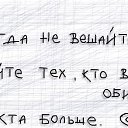 гда не вешайт
йте тех, кто в
оби
кта больше.